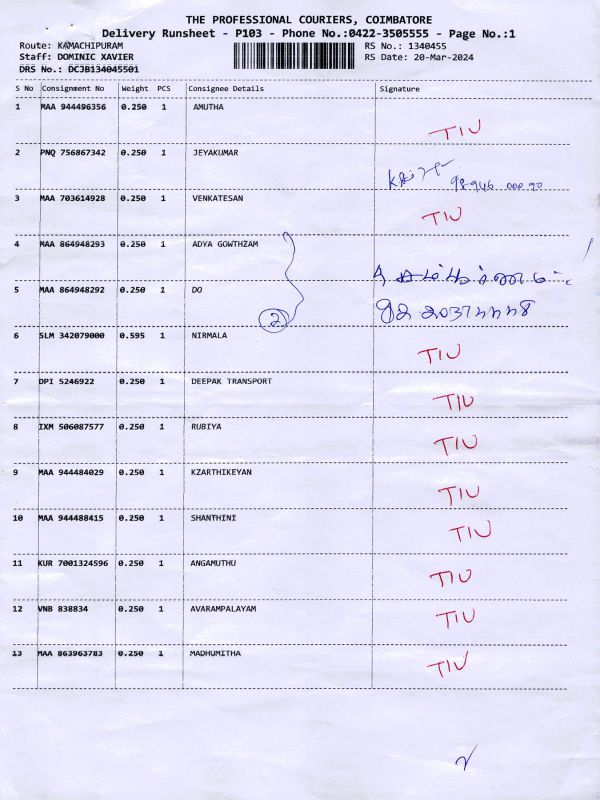 THE PROFESSIONAL COURIERS, COIMBATORE
Delivery Runsheet - P103 - Phone No.:0422-3505555 - Page No.:1
Route: KAMACHIPURAM RS No.: 1340455
Staff: DOMINIC XAVIER RS Date: 20-Mar-2024
DRS No.: DCJB134045501
S No Consignment No Weight PCS Consignee Details Signature
1 MAA 944496356 0.250 1 AMUTHA TIU
2 PNQ 756867342 0.250 1 JEYAKUMAR
3 MAA 703614928 0.250 1 VENKATESAN TIU
4 MAA 864948293 0.250 1 ADYA GOWTHZAM
5 MAA 864948292 0.250 1 DO
2
6 SLM 342079000 0.595 1 NIRMALA TIU
7 DPI 5246922 0.250 1 DEEPAK TRANSPORT TIU
8 IXM 506087577 0.250 1 RUBIYA TIU
9 MAA 944484029 0.250 1 KZARTHIKEYAN TIU
10 MAA 944488415 0.250 1 SHANTHINI TIU
11 KUR 7001324596 0.250 1 ANGAMUTHU TIU
12 VNB 838834 0.250 1 AVARAMPALAYAM TIU
13 MAA 863963783 0.250 1 MADHUMITHA TIU